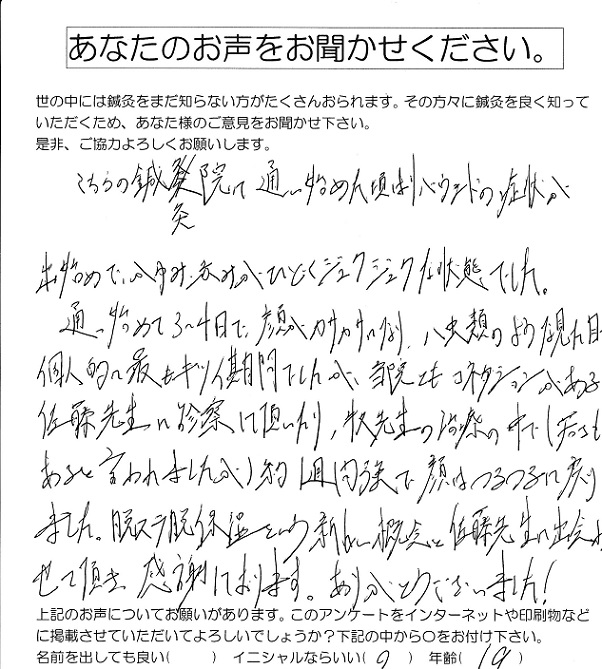 あなたのお声をお聞かせください。
世の中には鍼灸をまだ知らない方がたくさんおられます。その方々に鍼灸を良く知って
いただくため、あなた様のご意見をお聞かせ下さい。
是非、ご協力よろしくお願いします。
こちらの鍼灸院に通い始めた頃はリバウンドの症状が
出始めで、かゆみ、赤みがひどくジュクジュクな状態でした。
通い始めて3〜4日で、顔がカサカサになり、ハ虫類のような見た目
個人的に最もキツイ期間でしたが、当院ともコネクションがある
佐藤先生に診察して頂いたり、牧先生の治療の中で(若さも
あると言われましたが)約1週間強で顔はつるつるに戻り
ました。脱ステ脱保湿という新しい概念と佐藤先生に出会わ
せて頂き、感謝しております。ありがとうございました!
上記のお声についてお願いがあります。このアンケートをインターネットや印刷物など
に掲載させていただいてよろしいでしょうか?下記の中から○をお付け下さい。
名前を出しても良い( ) イニシャルならいい( ) 年齢( 19 )